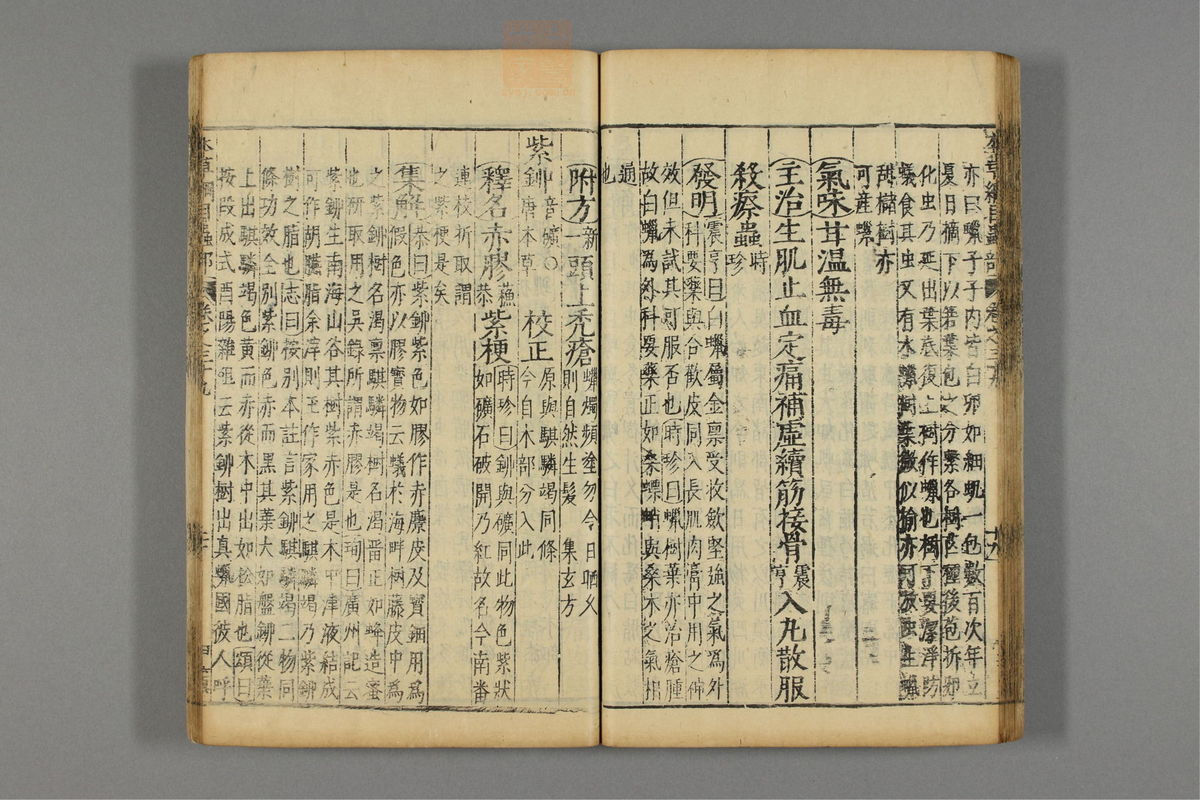 亦曰蠟子子內皆白卵如細蟣一包數百次年立
夏日摘下以箬葉包之分繫各樹芒種後苞拆卵
化虫乃延出葉底復上樹作蠟也樹下要潔淨防
蟻食其虫又有水蠟樹葉微似榆亦可放虫生蠟
甜櫧樹亦
可產蠟
氣味甘温無毒
主治生肌止血定痛補虛續筋接骨震亨入丸散服
殺瘵蟲時珍
發明震亨曰白蠟屬金禀受收斂堅強之氣為外
科要藥與合歡皮同入長肌肉膏中用之神
效但未試其可服否也時珍曰蠟樹葉亦治瘡腫
故白蠟為外科要藥正如桑螵蛸與桑木之氣相
通也
附方新一頭上禿瘡蠟燭頻塗勿令日晒久
則自然生髮 集玄方
紫鉚音礦〇唐本草校正原與騏驎竭同條
今自木部分入此
釋名赤膠蘓恭紫梗時珍曰鉚與礦同此物色紫狀
如礦石破開乃紅故名今南番
連枝折取謂
之紫梗是矣
集解恭曰紫鉚紫色如膠作赤麖皮及寶鈿用為
假色亦以膠寶物云蟻於海畔樹藤皮中為
之紫鉚樹名渴禀騏驎竭樹名渴畱正如蜂造蜜
也研取用之吳錄所謂赤膠是也珣曰廣州記云
紫鉚生南海山谷其樹紫赤色是木中津液結成
可作胡臙脂余滓則玉作家用之騏驎竭乃紫鉚
樹之脂也志曰按别本註言紫鉚騏驎竭二物同
條功效全别紫鉚色赤而黑其葉大如盤鉚從葉
上出騏驎竭色黄而赤從木中出如松脂也頌曰
按段成式酉陽雜俎云紫鉚樹出真臘國彼人呼